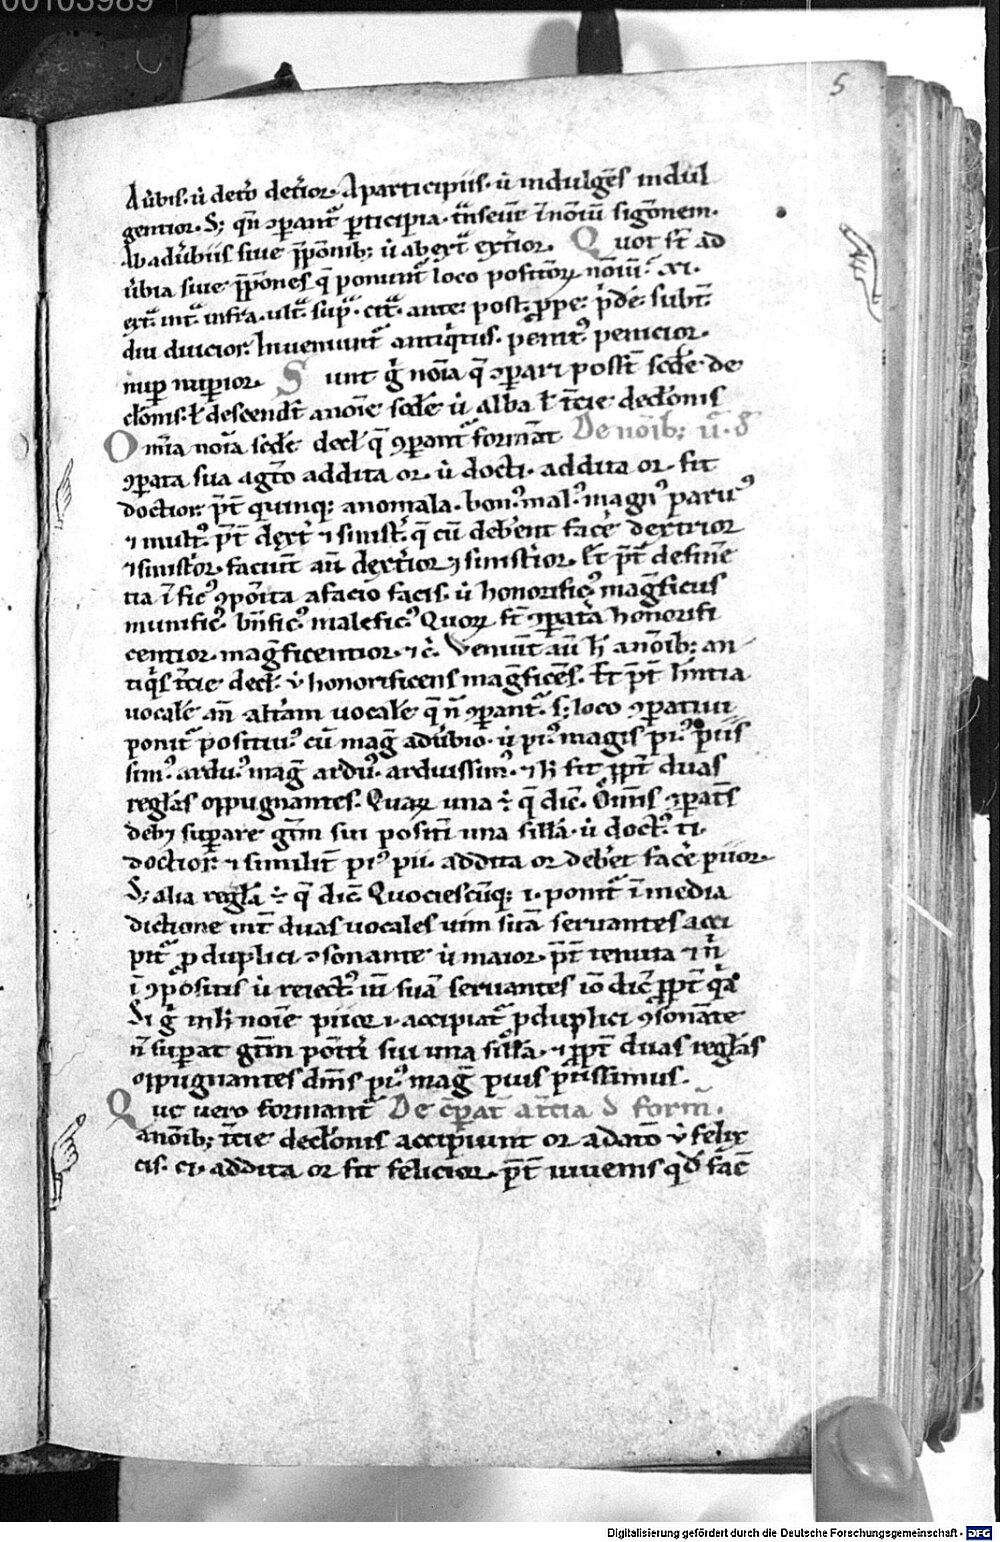 00103989
5
A ūbis. ù deto᷒ deťior. A participiis. ù indulgēs indul
gentior. S; qn̄ ꝯparant᷑ ꝑticipia. tn̄seūt ī noīū sigōnem.
Ab adūbiis siue p̄pōnib; ù ab ext᷑ exťior. Quot st̄ ad
ūbia siue p̄pōnes q̄ ponunt᷑ loco positoꝝ noīū. xi.
ext᷑. int᷑. infra. ult᷑. sup᷑. cit᷑. ante. post. ꝓpe. p̄de. subt᷑.
diu diucior. Inueniunt᷑ antiq̇tus. penit᷒ penicior.
nuꝑ nuꝑior. Sunt g̊ noīa q̄ ꝯꝑari possūt scd̄e de
cl̄onis. ł descendūt a noīe scd̄e ù alba ł t̄cie decl̄onis
Omīa noīa scd̄e decł q̄ ꝯꝑant᷑ formāt De noīb; ù. d᷑
ꝯꝑata sua a gt̄o addita or. ù docti. addita or. fit
doctior. p̄t quinq; anomala. bon᷒. mal᷒. magn᷒. paru᷒
⁊ mult᷒. p̄t dext᷑ ⁊ sinist᷑. q̄ cū debent facē dextrior
⁊ sinistror. faciūt aū dexťior ⁊ sinisťior. Et p̄t define᷒
tia ī fic᷒ ꝯpoīta a facio facis. ù honorific᷒ magn̄ficus
munific᷒. bn̄fic᷒. malefic᷒ Quoꝝ st̄ ꝯꝑata honorifi
centior. magn̄ficentior. ⁊ c̄. Veniūt aū h̄ a noīb; an
tiq̇s t̄cie decł. ù honorificens magn̄ficēs. Et p̄t hn̄tia
uocalē an̄ altām uocalē q̄ n̄ ꝯꝑant᷑. s; loco ꝯꝑatiui
ponit᷑ positiu᷒ cū mag̅ adūbio. ù pi᷒. magis pi᷒. piis
sim᷒. ardu᷒. mag̅ ardu᷒. arduissim᷒. ⁊ h̄ fit ꝓpt̄ duas
regłas oppugnantes. Quaꝝ una ē q̄ dīc. Om̄is ꝯꝑat᷒
deb; suꝑare gt̄m sui positi una siłła. ù doct᷒. ti.
doctior. ⁊ similiť pi᷒ pii. addita or deb̄et facē piior.
S; alia regła ē q̄ dīc. Quociescūq; i. ponit᷑ ī media
dictione int᷑ duas uocales uim suā seruantes acci
pit᷑ ꝓ duplici ꝯsonante ù maior. p̄t tenuia ⁊ n̄
ī ꝯpositis ù reiect᷒ iū suā seruantes iō dic̄ ꝓpt̄ q̄a
Si g̊ in h̄ noīe piior i. accipiat᷑ ꝓ duplici ꝯsonāte
n̄ suꝑat gt̄m poīti sui una siłła. ⁊ ꝓpt̄ duas regłas
oppugnantes dim̄s pi᷒. mag̅ pius piissimus.
Que uero formant᷑ De cꝑat a t̄cia d form̄.
a noīb; t̄cie decl̄onis accipiunt or a dat̄o ù felix
cis. ci. addita or fit felicior. p̄t iuuenis qd̄ fac̄
Digitalisierung gefördert durch die Deutsche Forschungsgemeinschaft - DFG